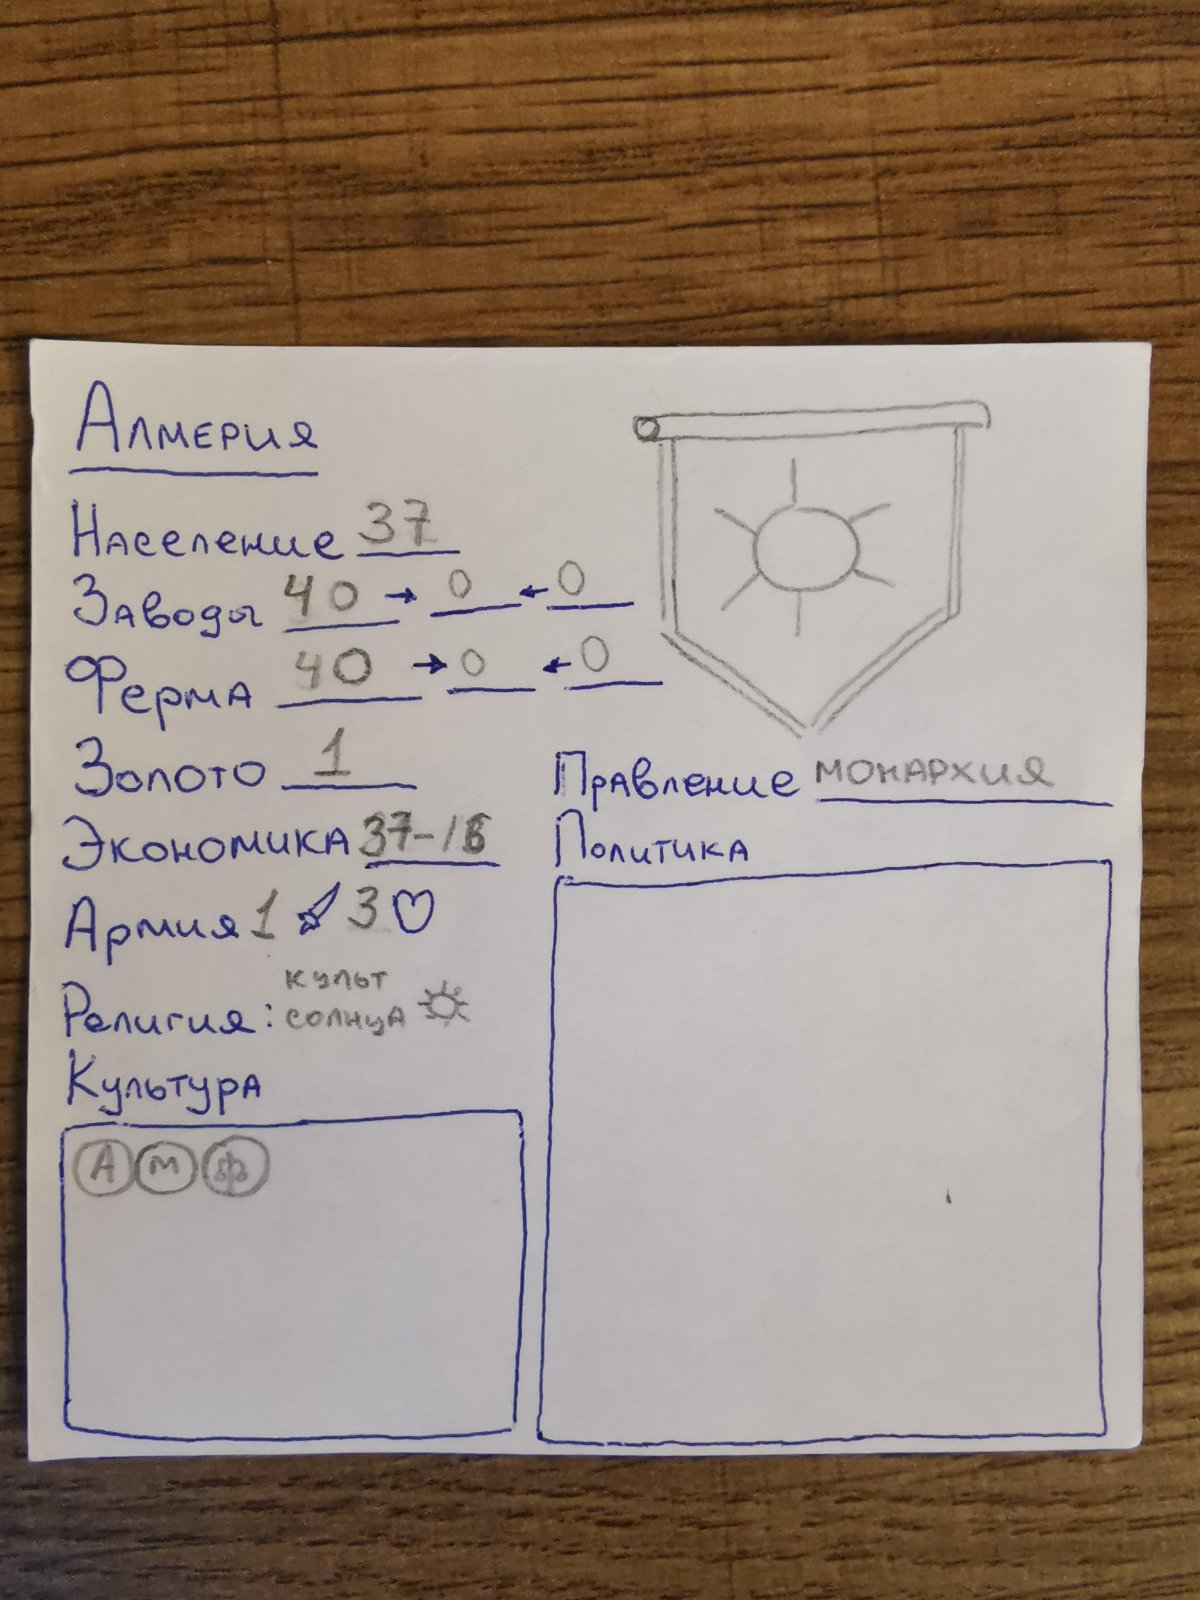 Алмерия
Население 37
Заводы 40 → 0 ← 0
Ферма 40 → 0 ← 0
Золото 1
Экономика 37-
Армия 1 3
Религия: культ
солнца
Культура
А М
Правление монархия
Политика